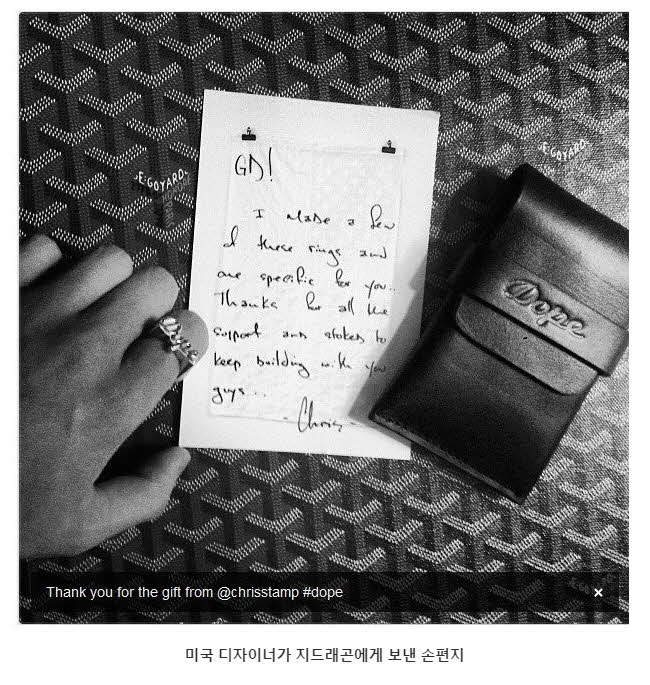 E.GOYARD
E.GOYARD
GD!
I made a few
of these rings and
one specific for you..
Thanks for all the
support and stoked to
keep building with you
guys...
- Chris -
Dope
Thank you for the gift from @chrisstamp #dope
×
미국 디자이너가 지드래곤에게 보낸 손편지